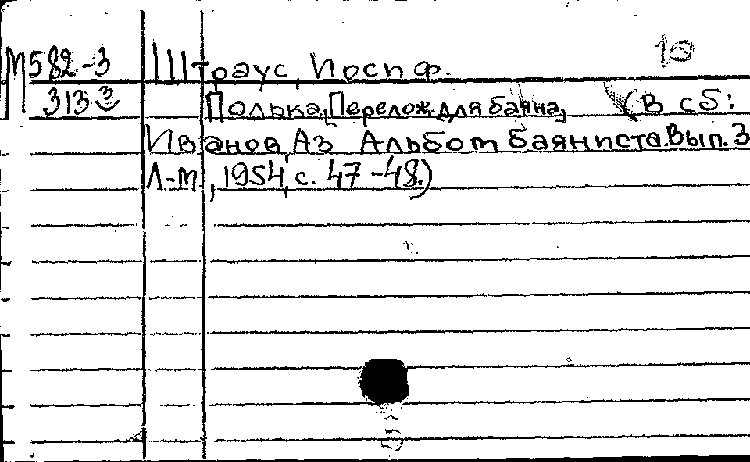 10
М582-3 Штраус, Иосиф.
313 3 Полька, Перелож. для баяна, (В сб:
Иванов, Аз Альбом баяниста. Вып. 3
Л-М, 1954, с. 47-48.)